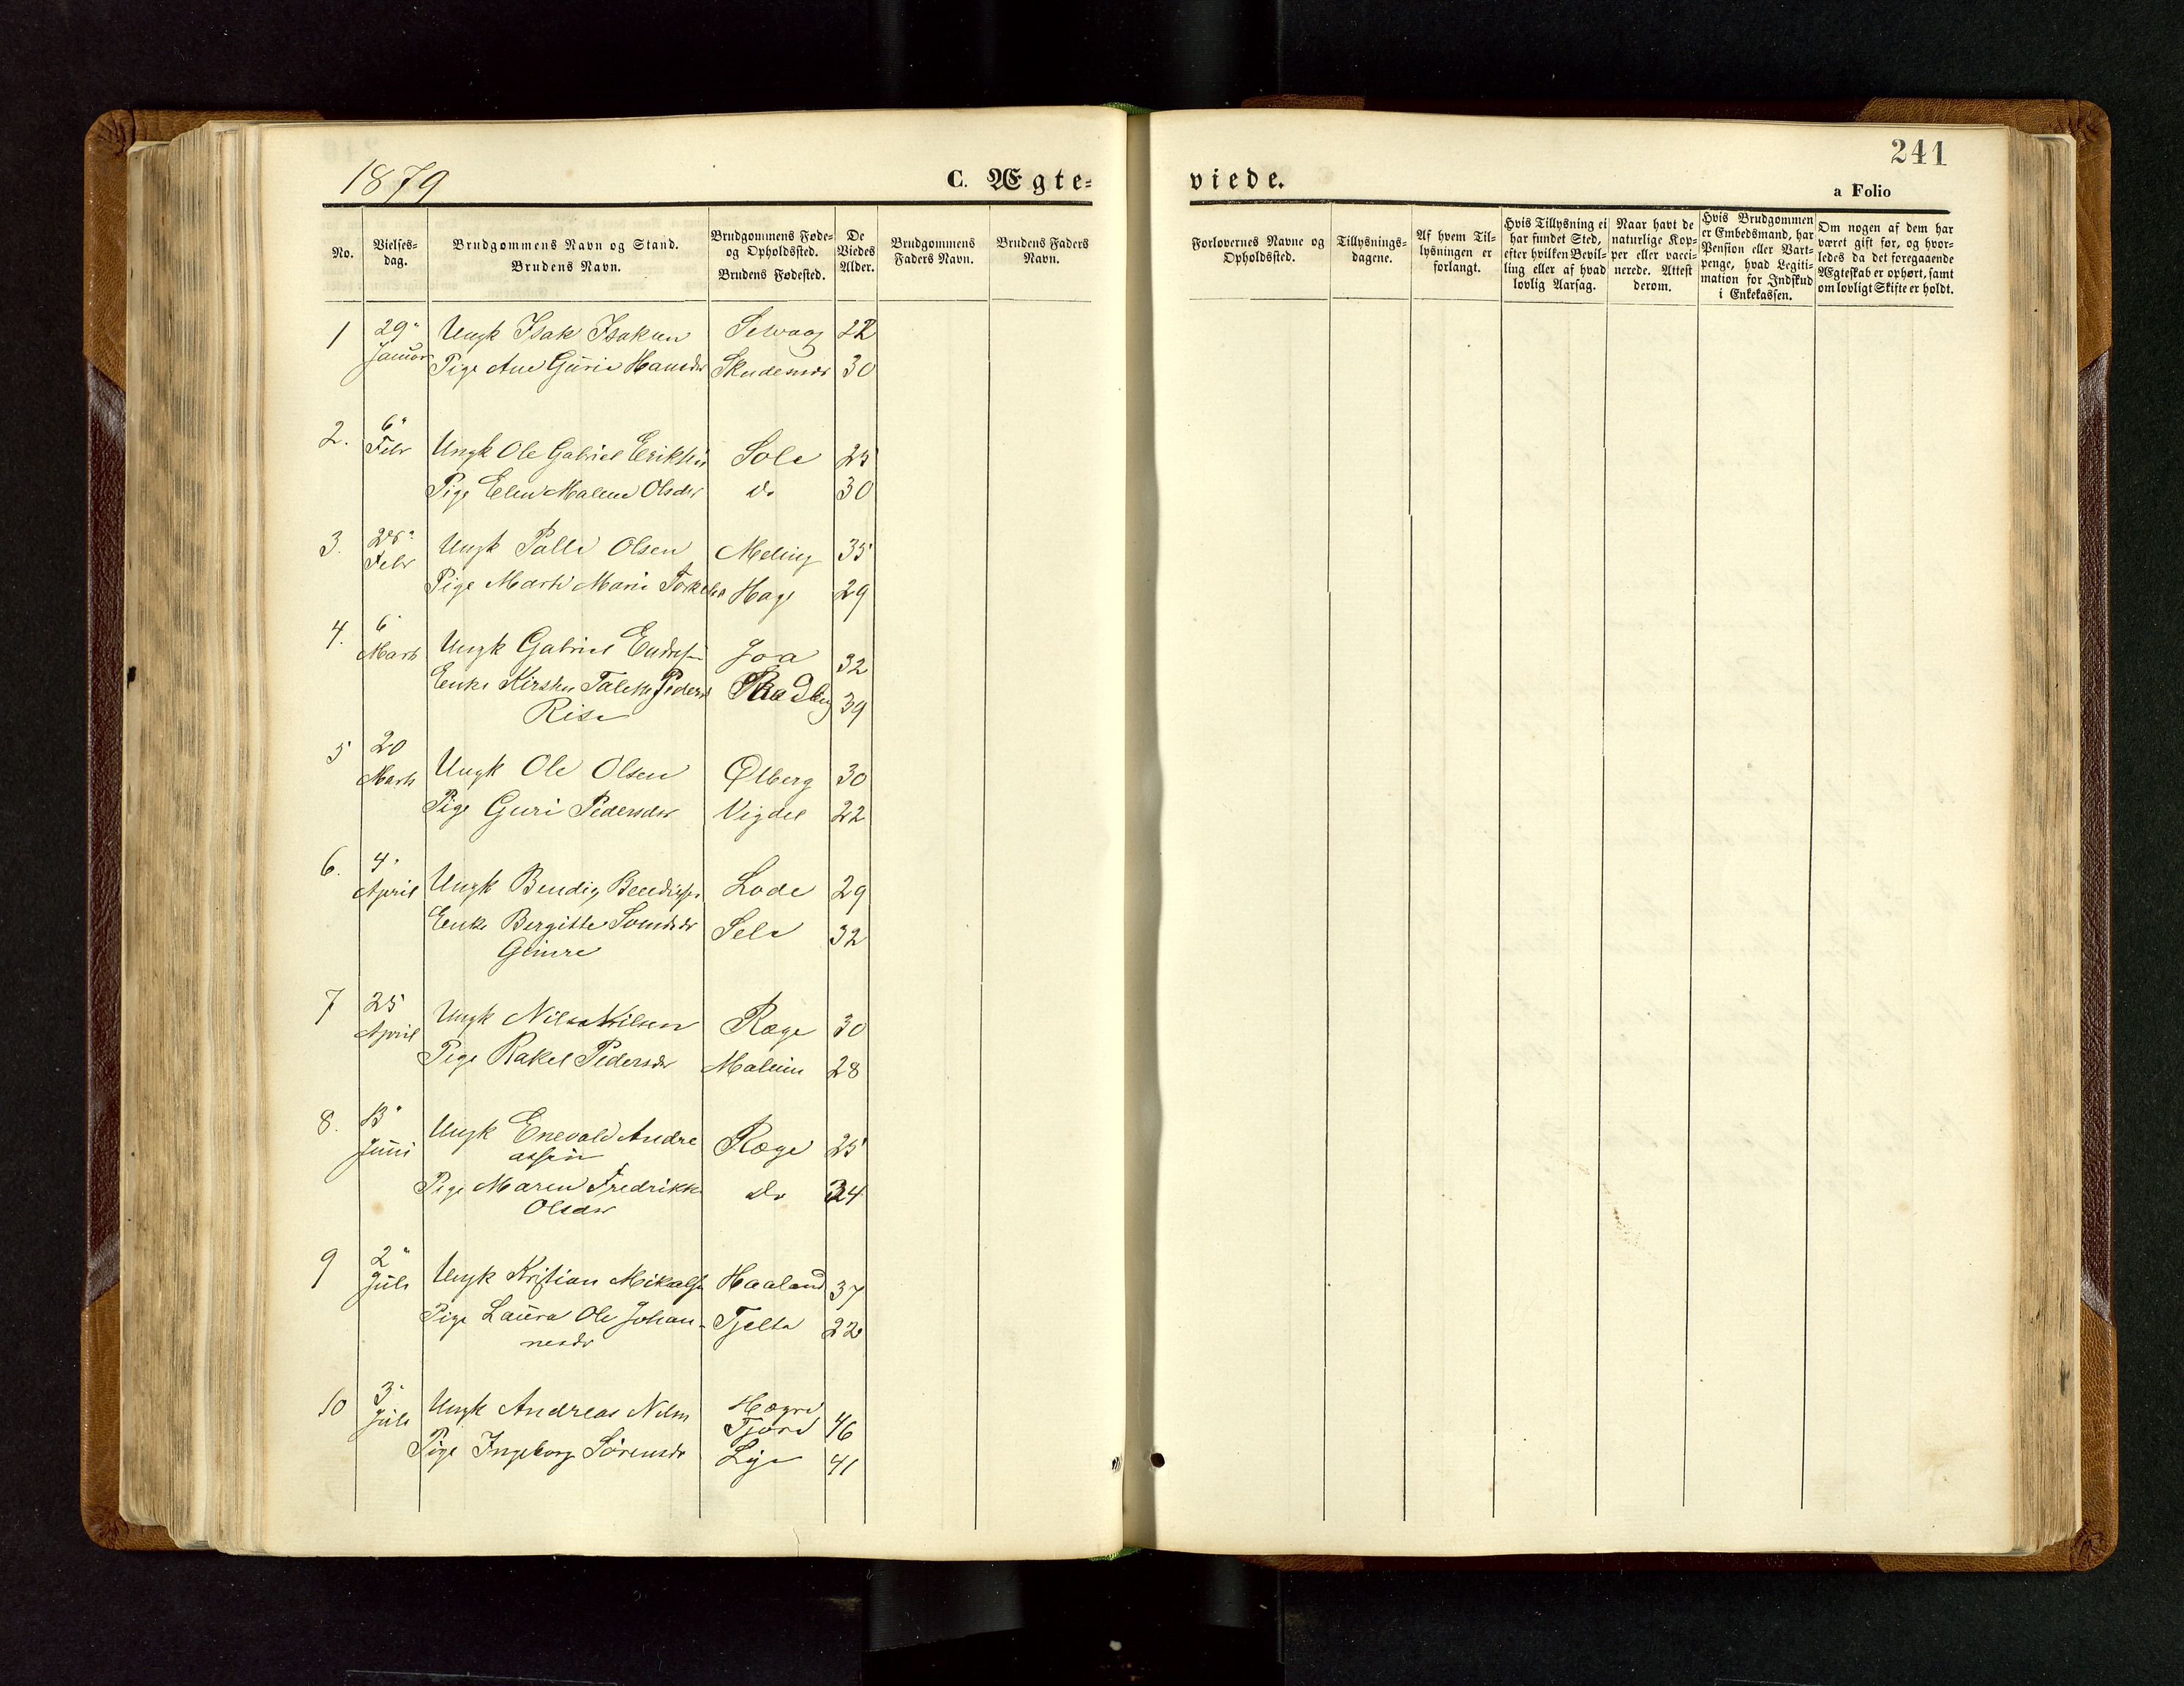 1879
C. Ægte-
viede.
241
a Folio
No.
Vielses-
dag.
Brudgommens Navn og Stand.
Brudens Navn.
Brudgommens Føde-
og Opholdssted.
Brudens Fødested.
De
Viedes
Alder.
Brudgommens
Faders Navn.
Brudens Faders
Navn.
Forlovernes Navne og
Opholdssted.
Tillysnings-
dagene.
Af hvem Til-
lysningen er
forlangt.
Hvis Tillysning ei
har fundet Sted,
efter hvilken Bevil-
ling eller af hvad
lovlig Aarsag.
Naar havt de
naturlige Kop-
per eller vacci-
nerede. Attest
derom.
Hvis Brudgommen
er Embedsmand, har
Pension eller Vart-
penge, hvad Legiti-
mation for Indskud
i Enkekassen.
Om nogen af dem har
været gift før, og hvor-
ledes da det foregaaende
Ægteskab er ophørt, samt
om lovligt Skifte er holdt.
1 29 Ungk Isak Isaksen 22
Januar Pige Ane Gurie Hansdr Skudesnes 30
2. 6
Febr Ungk Ole Gabriel Eriksen Sole 25
Pige Elen Malene Olsdr do 30
3. Ungk Palle Olsen Meling 35
Febr
Pige Marte Marie Hage 29
4. 6
Marts Ungk Gabriel Joa 32
Enke Kirsten Talette Pedersd 39
Risa
5 20
Marts Ungk Ole Olsen Ølberg 30
Pige Guri Pedersdr Vigdel 22
6. 4
April Ungk Bendix Bendixsen Lode 29
Enke Bergitte Sele 32
Gimre
7 25
April Ungk Nils Nilsen Ræge 30
Pige Rakel Pedersdr Maleim 28
8. 13
Juni Ungk Enevald Andre Ræge 25
assen
Pige Maren Fredrikke do 24
Olsdr
9 2
Juli Ungk Kristian Mikalsen Haaland 37
Pige Laura Ole Johan- Tjelta 22
nesdr
10 3
Juli Ungk Andreas Nilsen Høgre
Tjord 46
Pige Ingeborg Sørensdr Lye 41